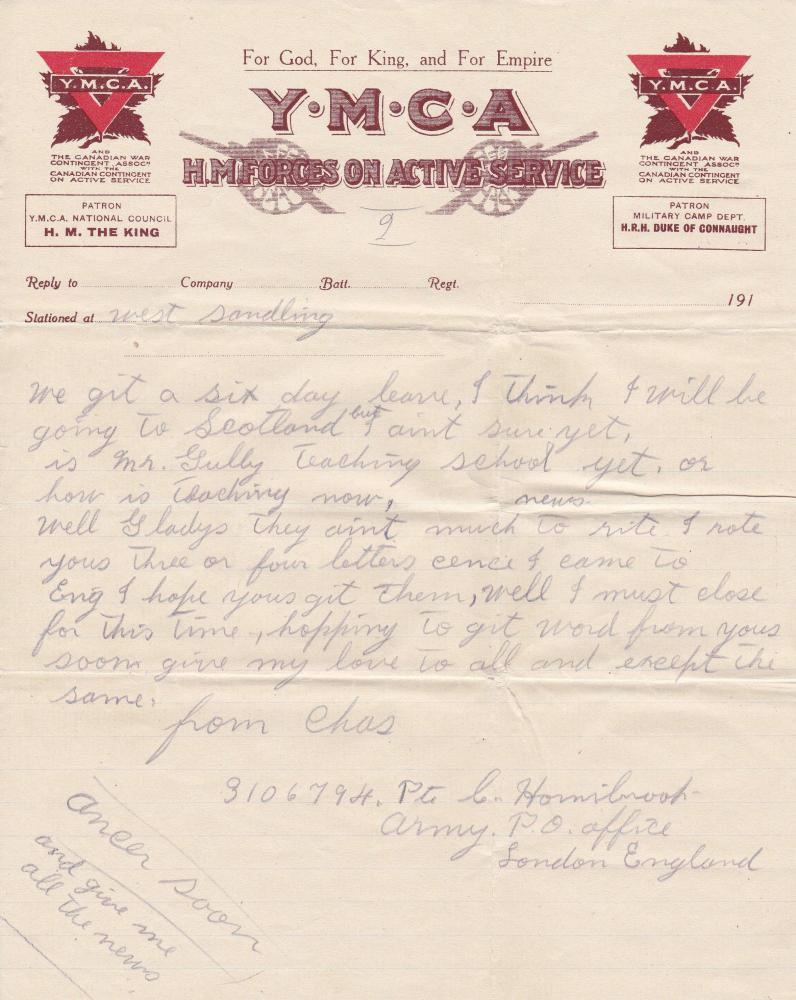 For God, For King, and For Empire
Y·M·C·A
H.M. FORCES ON ACTIVE SERVICE
Y.M.C.A.
AND
THE CANADIAN WAR
CONTINGENT ASSOCN
WITH THE
CANADIAN CONTINGENT
ON ACTIVE SERVICE
PATRON
Y.M.C.A. NATIONAL COUNCIL
H. M. THE KING
Y.M.C.A.
AND
THE CANADIAN WAR
CONTINGENT ASSOCN
WITH THE
CANADIAN CONTINGENT
ON ACTIVE SERVICE
PATRON
MILITARY CAMP DEPT.
H.R.H. DUKE OF CONNAUGHT
2
Reply to Company Batt. Regt.
191
Stationed at west Sandling
We git a six day leave, I think I will be
going to Scotland but I aint sure yet,
is Mr. Gully teaching school yet, or
how is teaching now,
Well Gladys they aint much news to rite I rote
yous three or four letters cence I came to
Eng I hope yous git them, well I must close
for this time, hopping to git word from yous
soom give my love to all and except the
same.
from Chas
3106794. Pte C. Hornibrook
Army. P.O. office
London England
ancer soon
and give me
all the news